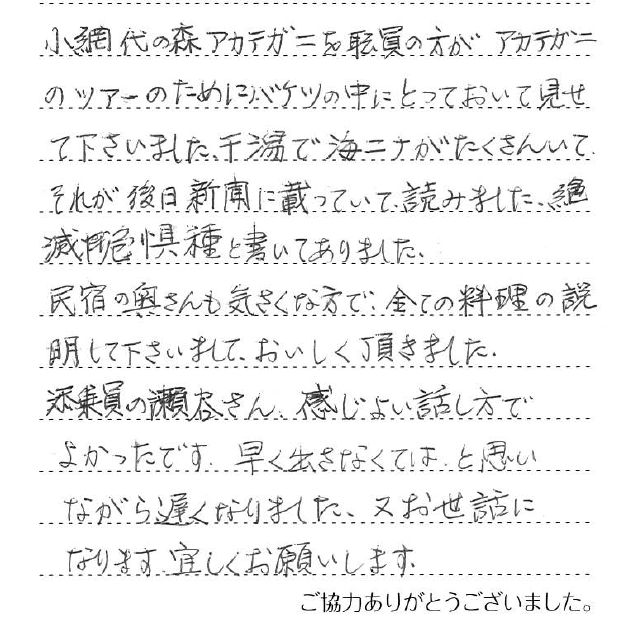 小網代の森アカテガニを職員の方が アカテガニ
のツアーのためにバケツの中にとっておいて見せ
て下さいました、干潟で海ニナがたくさんいて
それが後日新聞に載っていて読みました、絶
滅危惧種と書いてありました、
民宿の奥さんも気さくな方で、全ての料理の説
明して下さいまして、おいしく頂きました.
添乗員の瀬谷さん、感じよい話し方で
よかったです. 早く出さなくては、と思い
ながら遅くなりました、又お世話に
なります.宜しくお願いします.
ご協力ありがとうございました。